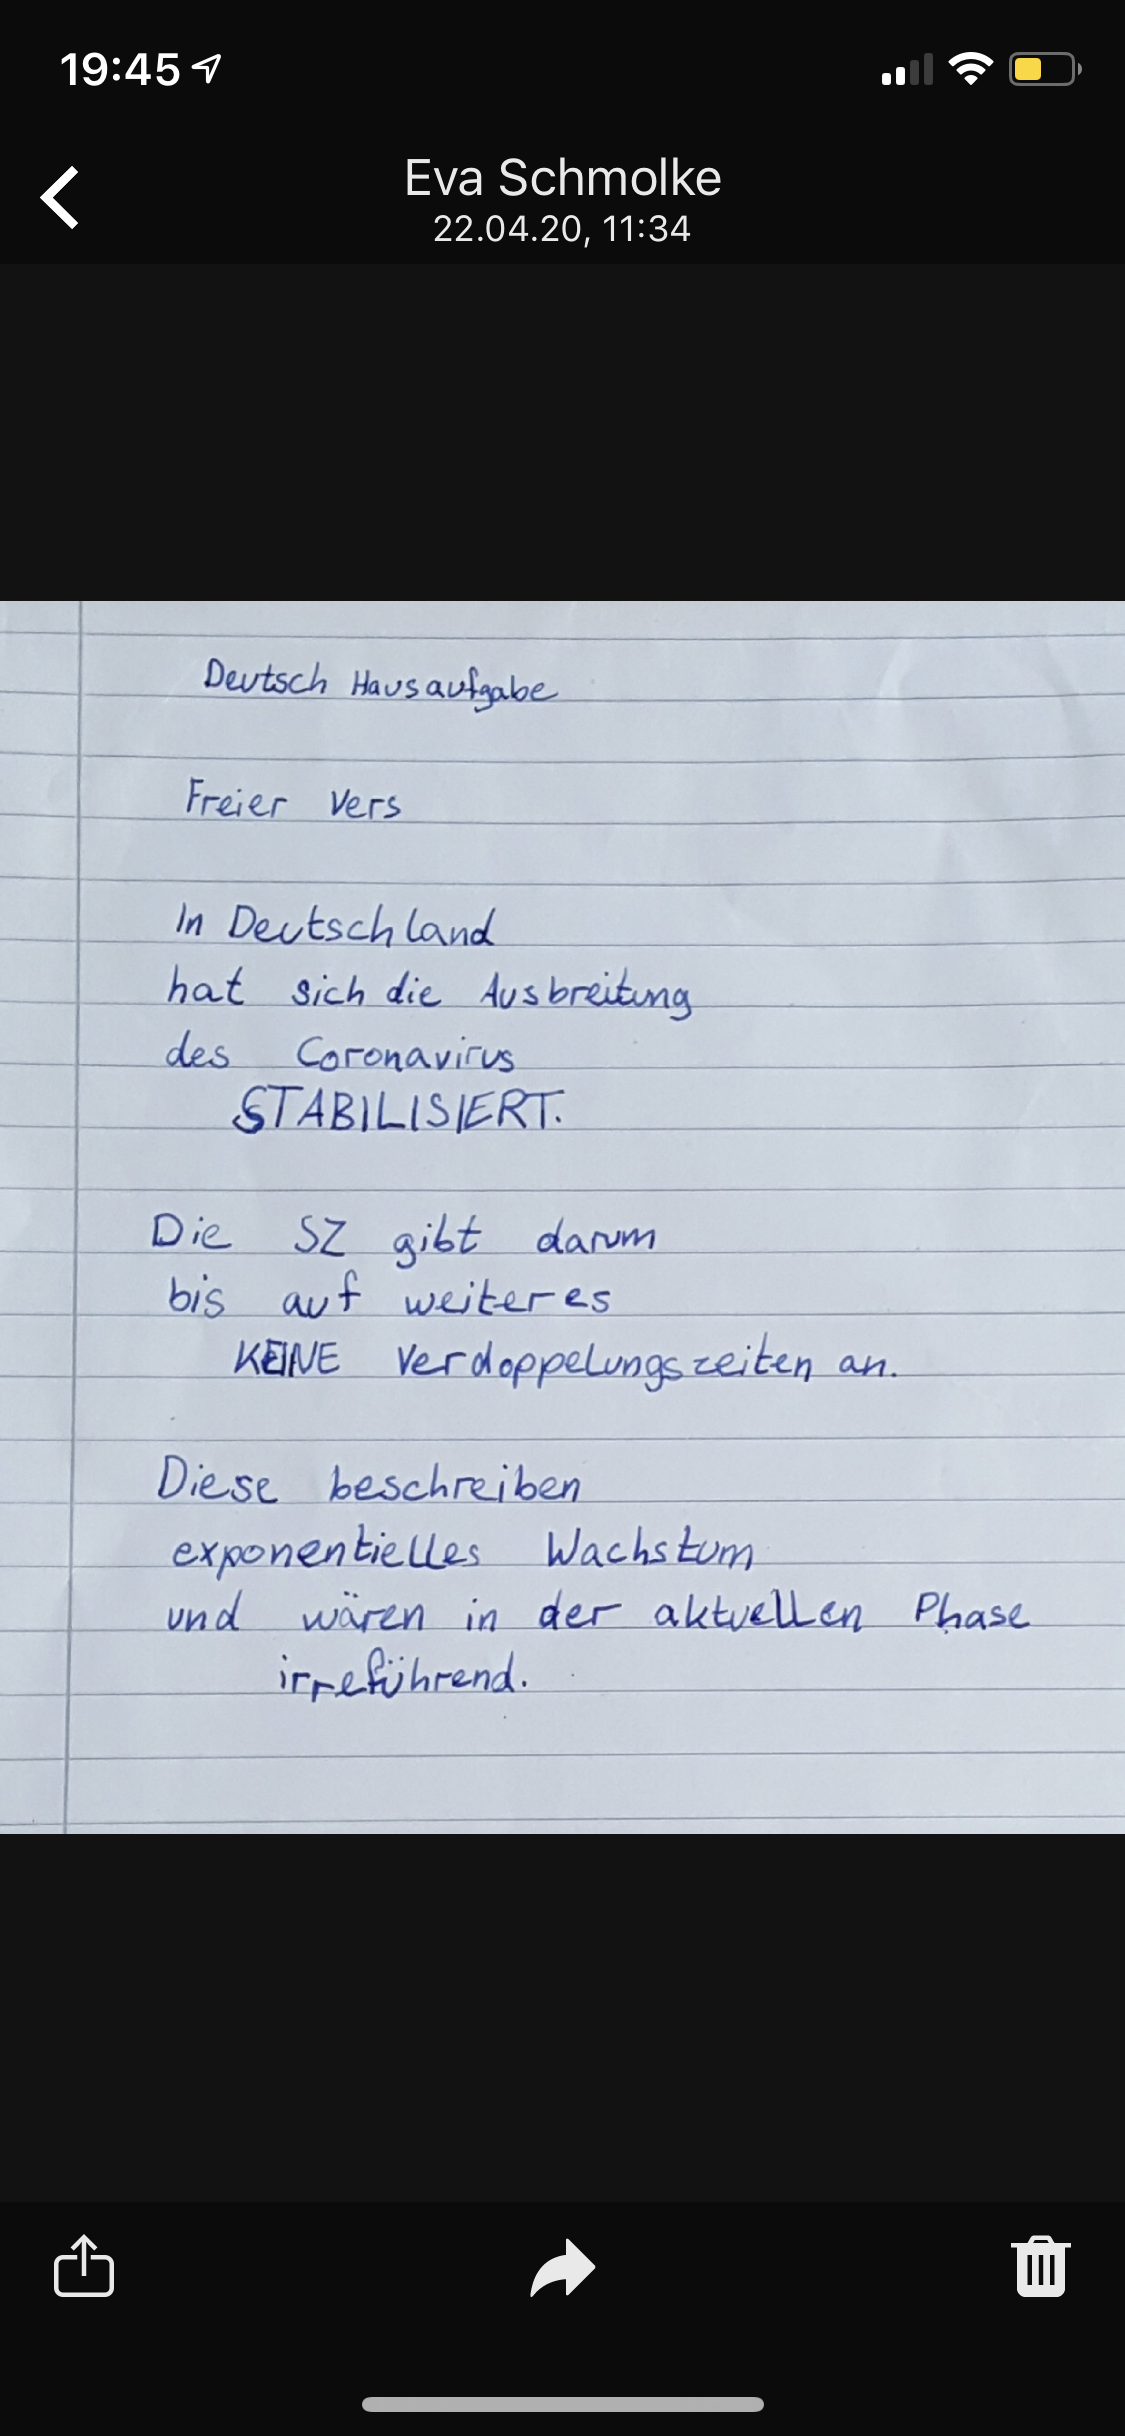 19:45
Eva Schmolke
22.04.20, 11:34
Deutsch Hausaufgabe
Freier Vers
In Deutschland
hat sich die Ausbreitung
des Coronavirus
STABILISIERT.
Die SZ gibt darum
bis auf weiteres
KEINE Verdoppelungszeiten an.
Diese beschreiben
exponentielles Wachstum
und wären in der aktuellen Phase
irreführend.